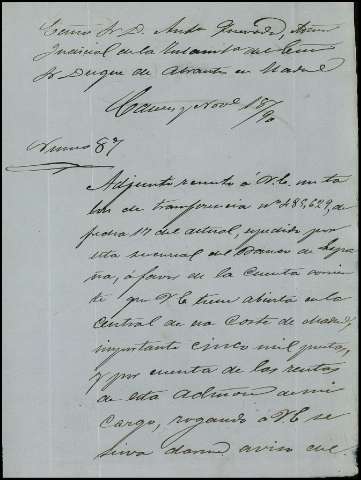 Excmo Sr D. Anto Quevedo, Admr
Judicial de la Testamta del Excmo
Sr Duque de Abrantes en Madrid
Caceres y Novbe 18/90
Numero 87
Adjunto remito á V.E. un ta
lon de transferencia nº 485,629, de
fecha 17 del actual, espedido por
esta sucursal del Banco de Espa
ña, á favor de la cuenta corrien
te que V.E. tiene abierta en la
Central de esa Corte de Madrid,
importante cinco mil pesetas,
y por cuenta de las rentas
de esta Admon de mi
cargo, rogando á V.E. se
sirva darme aviso del